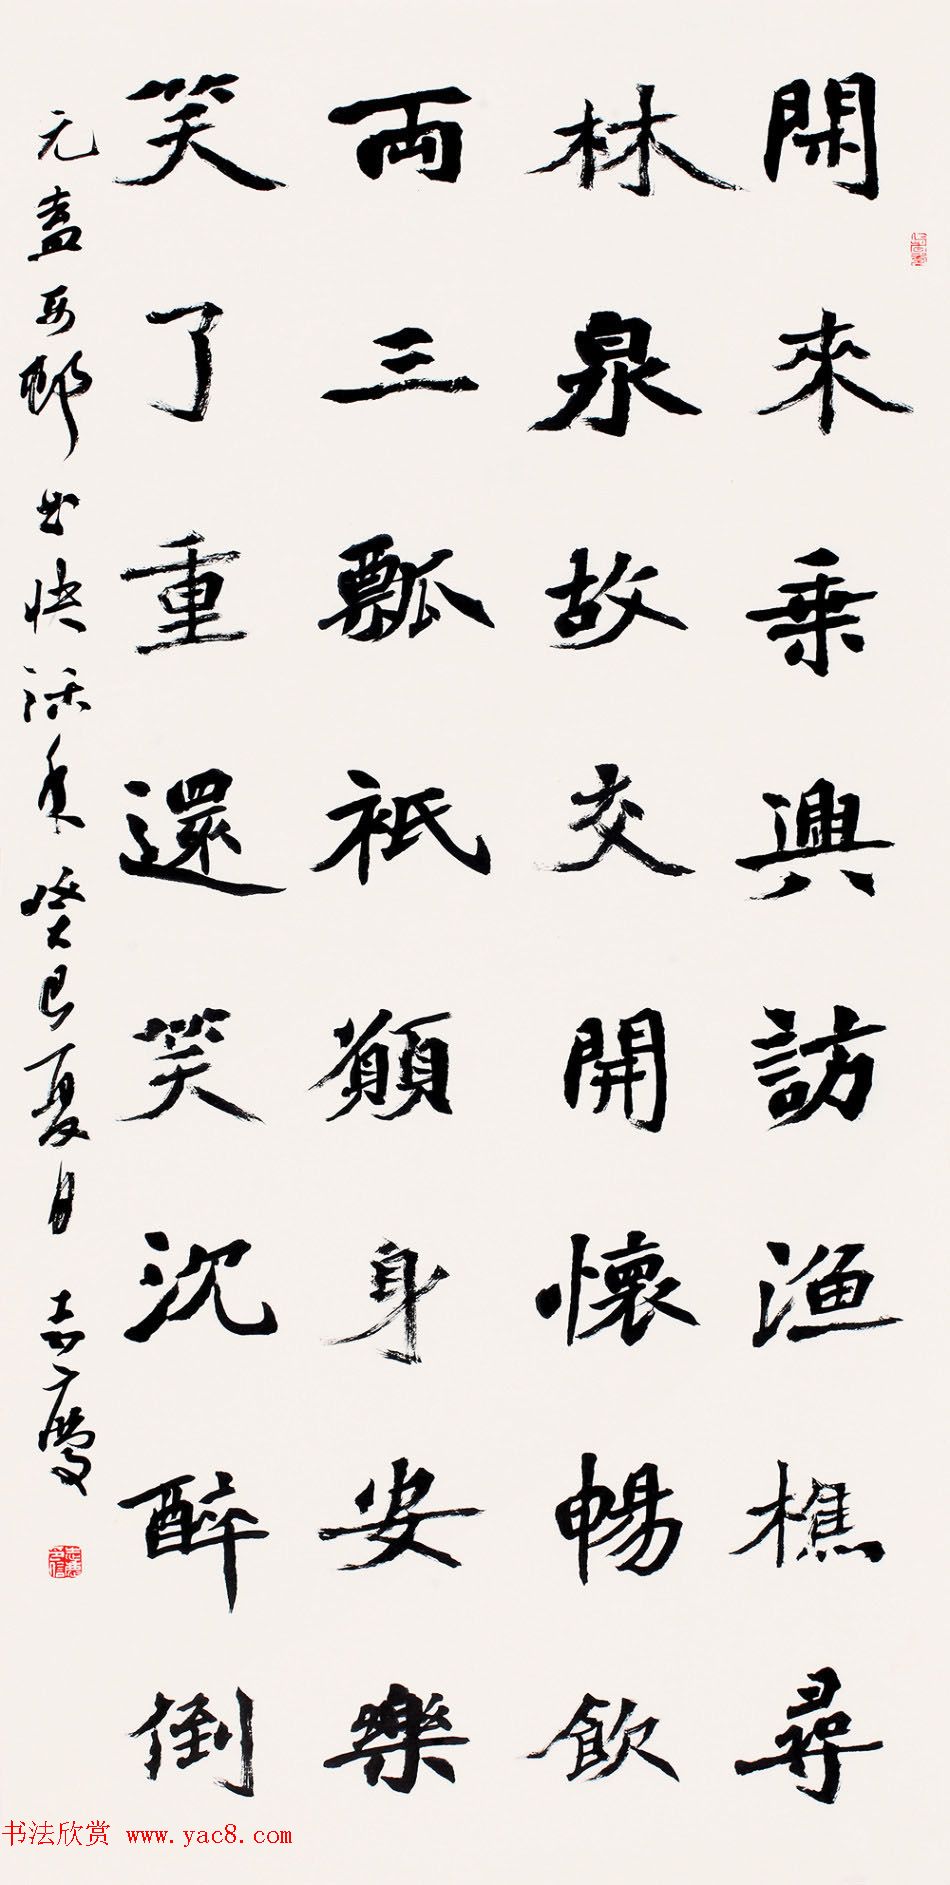 閑來乘興訪漁樵尋
林泉故交開懷暢飲
両三瓢祇願身安樂
笑了重還笑沈醉倒
元盍西邨曲快活年癸巳夏月志慶
书法欣赏 www.yac8.com